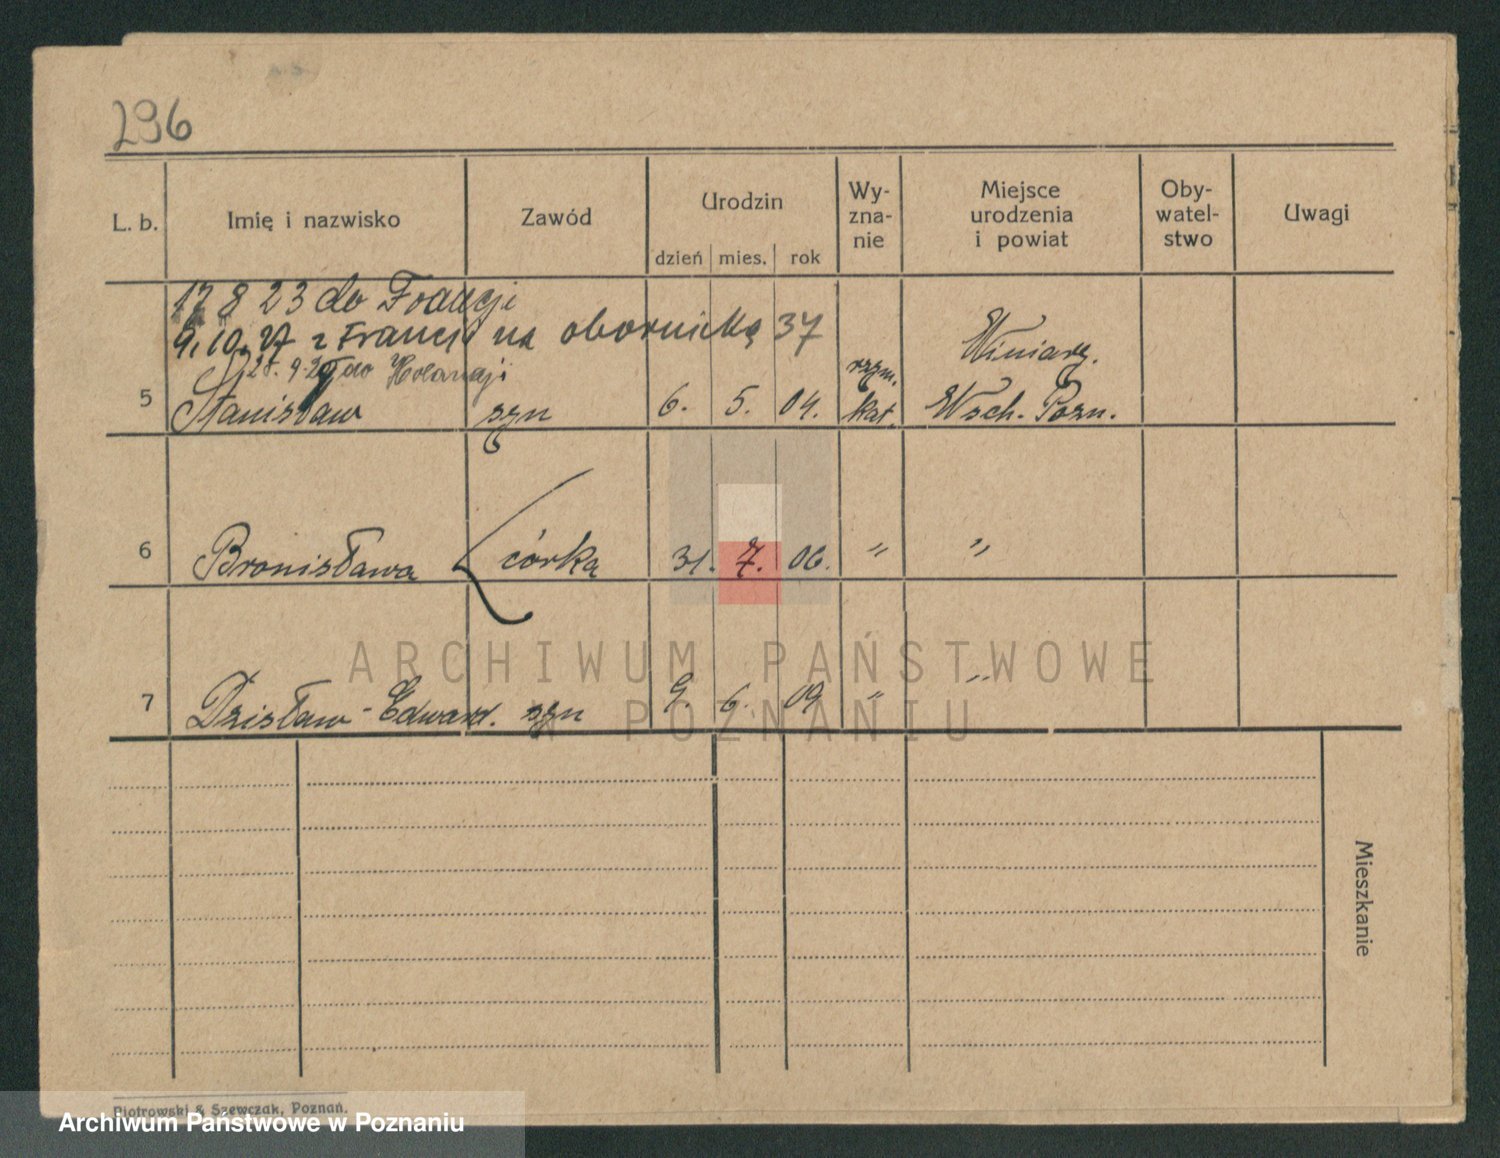 296
L. b. Imię i nazwisko Zawód Urodzin Wy-zna-nie Miejsce urodzenia i powiat Oby-watel-stwo Uwagi
dzień mies. rok
17 8 23 do Francji
9. 10. 27 z Francji na obornicką 37
28. 9. 29 do Holandji
5 Stanisław syn 6. 5. 04. rzym. kat. Winiary. Wsch. Pozn.
6 Bronisława córka 31. 7. 06. " "
7 Dzisław-Edward. syn 9. 6. 09 " "
ARCHIWUM PAŃSTWOWE
W POZNANIU
Mieszkanie
Piotrowski & Szewczak, Poznań.
Archiwum Państwowe w Poznaniu